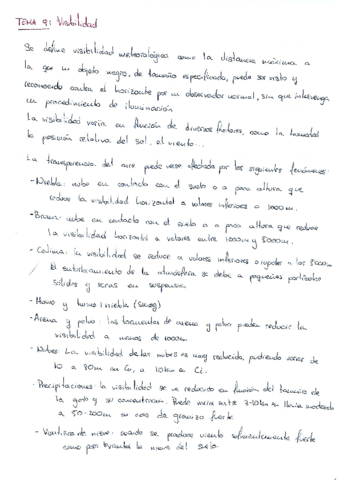 TEMA 9: Visibilidad
Se define visibilidad meteorológica como la distancia máxima a
la que un objeto negro, de tamaño especificado, puede ser visto y
reconocido contra el horizonte por un observador normal, sin que intervenga
un procedimiento de iluminación.
La visibilidad varía en función de diversos factores, como la humedad
la posición relativa del sol, el viento...
La transparencia del aire puede verse afectada por los siguientes fenómenos:
- Niebla: nube en contacto con el suelo o a poca altura que
reduce la visibilidad horizontal a valores inferiores a 1000m.
- Bruma: nube en contacto con el suelo o a poca altura que reduce
la visibilidad horizontal a valores entre 1000m y 5000m.
- Calima: la visibilidad se reduce a valores inferiores o iguales a los 5000m
El enturbiamiento de la atmósfera se debe a pequeñas partículas
sólidas y secas en suspensión
- Humo y humo + niebla (Smog)
- Arena y polvo: las tormentas de arena y polvo pueden reducir la
visibilidad a menos de 1000m
- Nubes: La visibilidad de las nubes es muy reducida, pudiendo variar de
10 a 20m en Cu, a 10km en Ci.
- Precipitaciones: la visibilidad se ve reducida en función del tamaño de
la gota y su concentración. Puede variar entre 3-10km en lluvia moderada
a 50-200m en caso de granizo fuerte
- Ventisca de nieve: cuando se produce viento suficientemente fuerte
como para levantar la nieve del suelo.